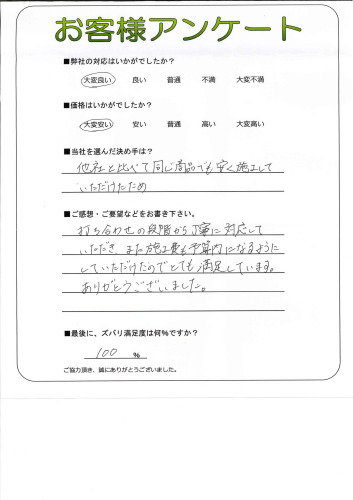 お客様アンケート
■弊社の対応はいかがでしたか？
大変良い 良い 普通 不満 大変不満
■価格はいかがでしたか？
大変安い 安い 普通 高い 大変高い
■当社を選んだ決め手は？
他社と比べて同じ商品でも安く施工して
いただけたため
■ご感想・ご要望などをお書き下さい。
打ち合わせの段階から丁寧に対応して
いただき、また施工費も予算内になるように
していただけたのでとても満足しています。
ありがとうございました。
■最後に、ズバリ満足度は何％ですか？
100 ％
ご協力頂き、誠にありがとうございました。